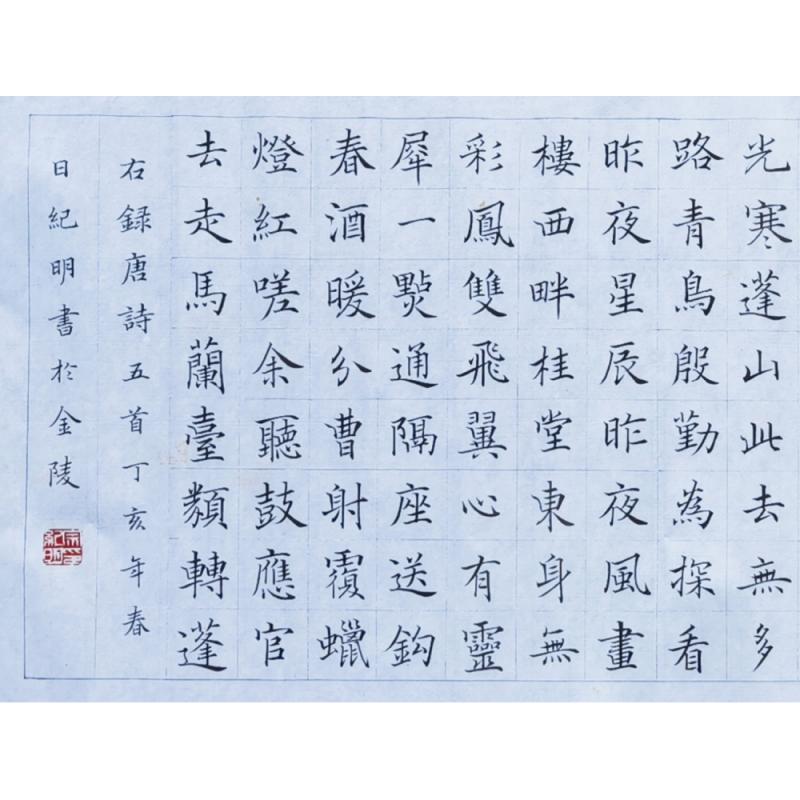 光寒蓬山此去無多
路青鳥殷勤為探看
昨夜星辰昨夜風畫
樓西畔桂堂東身無
彩鳳雙飛翼心有靈
犀一點通隔座送鈎
春酒暖分曹射覆蠟
燈紅嗟余聽鼓應官
去走馬蘭臺類轉蓬
右録唐詩五首丁亥年春
日紀明書於金陵